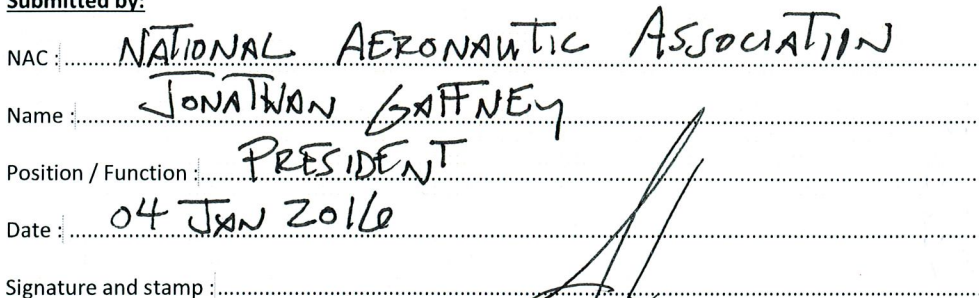 Submitted by:
NAC : NATIONAL AERONAUTIC ASSOCIATION
Name : JONATHAN GAFFNEY
Position / Function : PRESIDENT
Date : 04 JAN 2016
Signature and stamp :